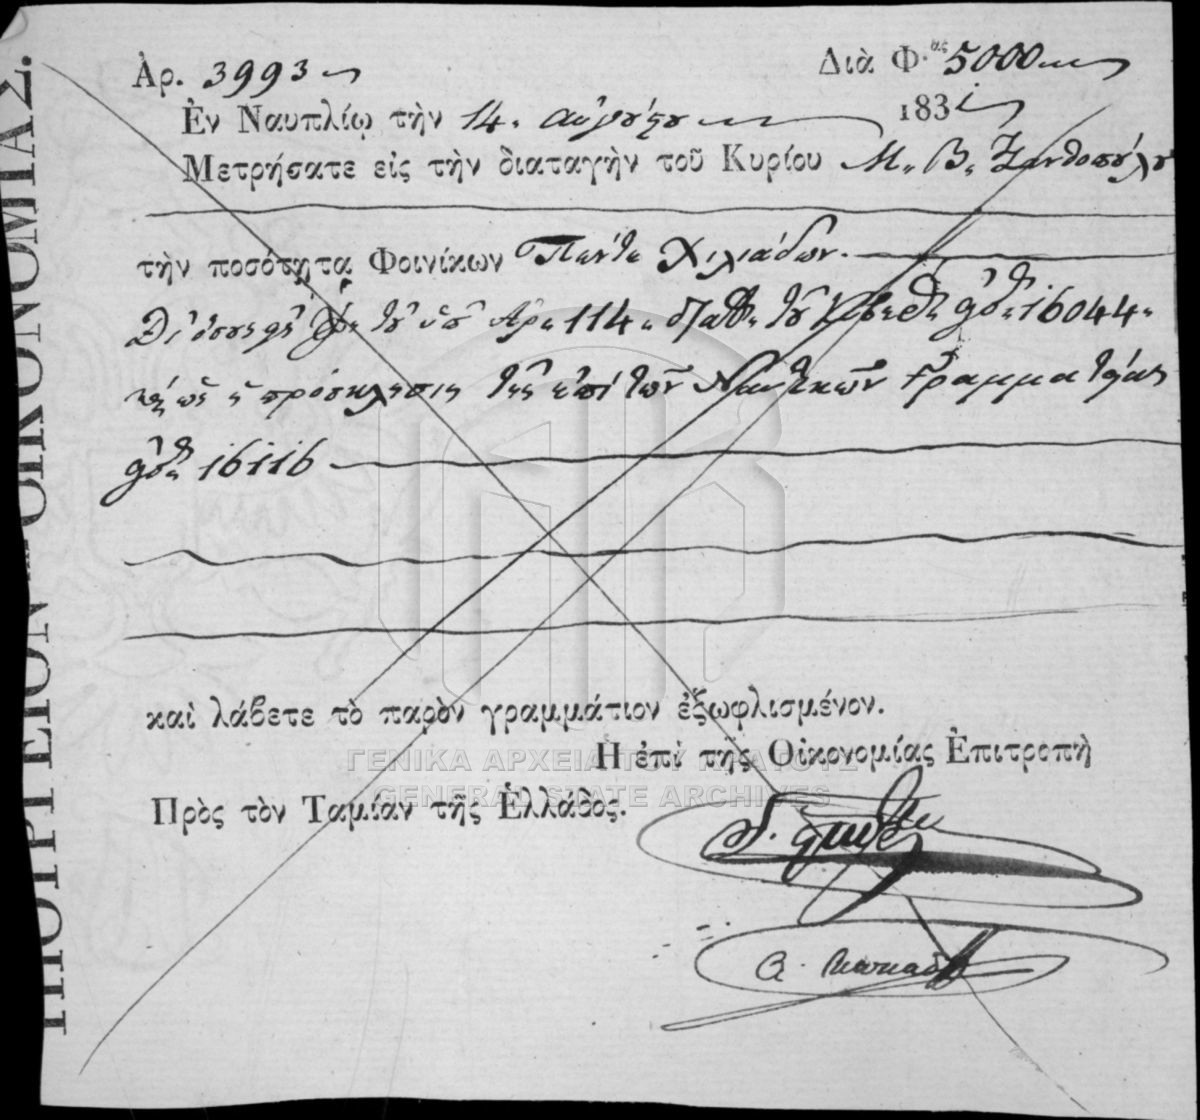 Ἀρ. 3993
Διὰ Φ.ας 5000
Ἐν Ναυπλίῳ τὴν 14. αὐγούςου 1831
Μετρήσατε εἰς τὴν διαταγὴν τοῦ Κυρίου Μ. Β. Ξανθοπούλου
τὴν ποσότητα Φοινίκων Πέντε Χιλιάδων.
Ἀρ. 114. 16044.
πρόσκλησις τῆς ἐπὶ τῶν Ναυτικῶν Γραμματείας
16116
καὶ λάβετε τὸ παρὸν γραμμάτιον ἐξωφλισμένον.
Ἡ ἐπὶ τῆς Οἰκονομίας Ἐπιτροπὴ
Πρὸς τὸν Ταμίαν τῆς Ἑλλάδος.
ΓΕΝΙΚΑ ΑΡΧΕΙΑ ΤΟΥ ΚΡΑΤΟΥΣ
GENERAL STATE ARCHIVES